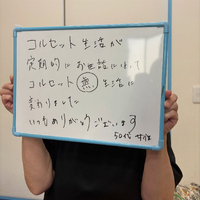 コルセット生活が
定期的にお世話になって
コルセット無生活に
変わりました
いつもありがとうございます
50代 女性